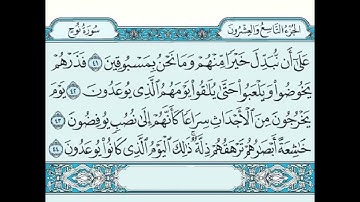 الجزء التاسع والعشرون
سورة نوح
عَلَىٰٓ أَن نُّبَدِّلَ خَيْرًا مِّنْهُمْ وَمَا نَحْنُ بِمَسْبُوقِينَ ٤١ فَذَرْهُمْ
يَخُوضُوا۟ وَيَلْعَبُوا۟ حَتَّىٰ يُلَٰقُوا۟ يَوْمَهُمُ ٱلَّذِى يُوعَدُونَ ٤٢ يَوْمَ
يَخْرُجُونَ مِنَ ٱلْأَجْدَاثِ سِرَاعًا كَأَنَّهُمْ إِلَىٰ نُصُبٍ يُوفِضُونَ ٤٣
خَٰشِعَةً أَبْصَٰرُهُمْ تَرْهَقُهُمْ ذِلَّةٌ ۚ ذَٰلِكَ ٱلْيَوْمُ ٱلَّذِى كَانُوا۟ يُوعَدُونَ ٤٤